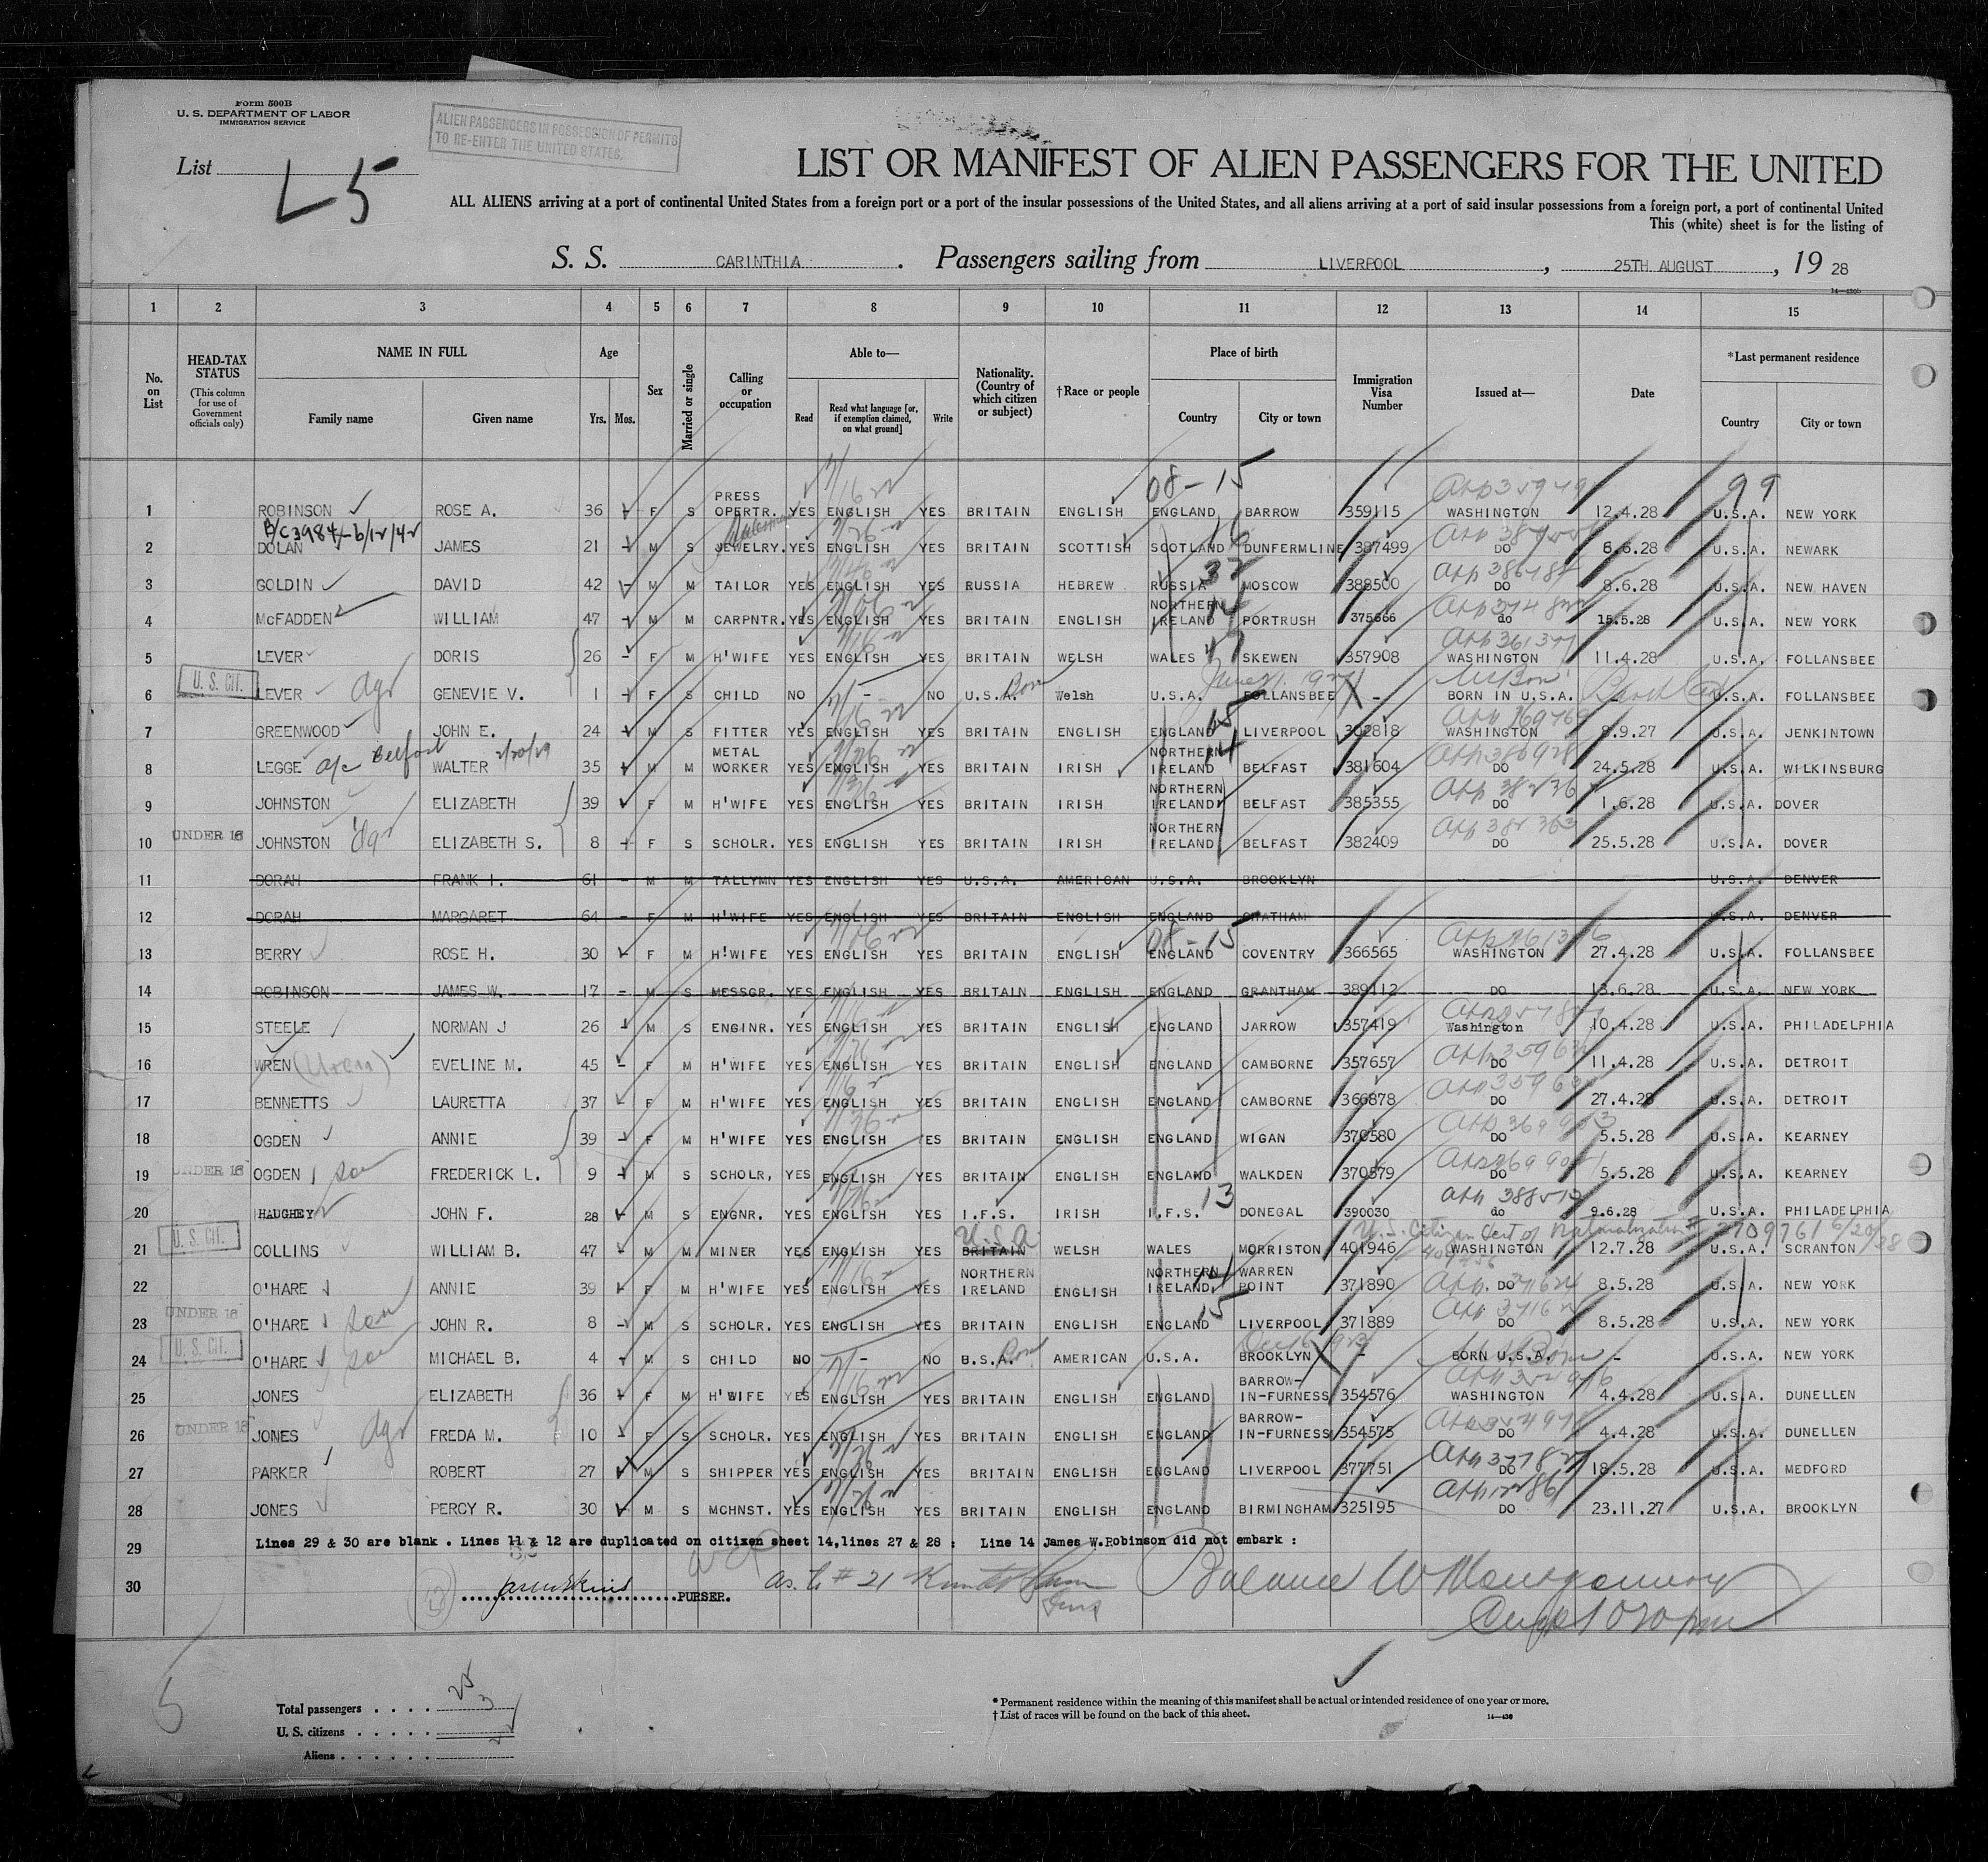 Form 500B
U. S. DEPARTMENT OF LABOR
IMMIGRATION SERVICE
ALIEN PASSENGERS IN POSSESSION OF PERMITS
TO RE-ENTER THE UNITED STATES.
List L5
LIST OR MANIFEST OF ALIEN PASSENGERS FOR THE UNITED
ALL ALIENS arriving at a port of continental United States from a foreign port or a port of the insular possessions of the United States, and all aliens arriving at a port of said insular possessions from a foreign port, a port of continental United
This (white) sheet is for the listing of
S. S. CARINTHIA. Passengers sailing from LIVERPOOL, 25TH AUGUST, 19 28
1 2 3 4 5 6 7 8 9 10 11 12 13 14 15
No. on List
HEAD-TAX STATUS (This column for use of Government officials only)
NAME IN FULL Family name Given name
Age Yrs. Mos.
Sex
Married or single
Calling or occupation
Able to— Read Read what language [or, if exemption claimed, on what ground] Write
Nationality. (Country of which citizen or subject)
†Race or people
Place of birth Country City or town
Immigration Visa Number
Issued at—
Date
*Last permanent residence Country City or town
08-15 99
1 ROBINSON ROSE A. 36 - F S PRESS OPERTR. YES ENGLISH YES BRITAIN ENGLISH ENGLAND BARROW 359115 WASHINGTON 12.4.28 U.S.A. NEW YORK
2 DOLAN JAMES 21 - M S JEWELRY. YES ENGLISH YES BRITAIN SCOTTISH SCOTLAND DUNFERMLINE 387499 DO 6.6.28 U.S.A. NEWARK
3 GOLDIN DAVID 42 - M M TAILOR YES ENGLISH YES RUSSIA HEBREW RUSSIA MOSCOW 388500 DO 8.6.28 U.S.A. NEW HAVEN
4 McFADDEN WILLIAM 47 - M M CARPNTR. YES ENGLISH YES BRITAIN ENGLISH NORTHERN IRELAND PORTRUSH 375666 do 15.5.28 U.S.A. NEW YORK
5 LEVER DORIS 26 - F M H'WIFE YES ENGLISH YES BRITAIN WELSH WALES SKEWEN 357908 WASHINGTON 11.4.28 U.S.A. FOLLANSBEE
6 U. S. CIT. LEVER GENEVIE V. 1 - F S CHILD NO - NO U.S.A. Born Welsh U.S.A. FOLLANSBEE - BORN IN U.S.A. - U.S.A. FOLLANSBEE
7 GREENWOOD JOHN E. 24 - M S FITTER YES ENGLISH YES BRITAIN ENGLISH ENGLAND LIVERPOOL 302818 WASHINGTON 8.9.27 U.S.A. JENKINTOWN
8 LEGGE WALTER 35 - M M METAL WORKER YES ENGLISH YES BRITAIN IRISH NORTHERN IRELAND BELFAST 381604 DO 24.5.28 U.S.A. WILKINSBURG
9 JOHNSTON ELIZABETH 39 F M H'WIFE YES ENGLISH YES BRITAIN IRISH NORTHERN IRELAND BELFAST 385355 DO 1.6.28 U.S.A. DOVER
10 UNDER 16 JOHNSTON ELIZABETH S. 8 - F S SCHOLR. YES ENGLISH YES BRITAIN IRISH NORTHERN IRELAND BELFAST 382409 DO 25.5.28 U.S.A. DOVER
11 DORAH FRANK I. 61 - M M TALLYMN YES ENGLISH YES U.S.A. AMERICAN U.S.A. BROOKLYN U.S.A. DENVER
12 DORAH MARGARET 64 - F M H'WIFE YES ENGLISH YES BRITAIN ENGLISH ENGLAND CHATHAM U.S.A. DENVER
08-15
13 BERRY ROSE H. 30 - F M H'WIFE YES ENGLISH YES BRITAIN ENGLISH ENGLAND COVENTRY 366565 WASHINGTON 27.4.28 U.S.A. FOLLANSBEE
14 ROBINSON JAMES W. 17 - M S MESSGR. YES ENGLISH YES BRITAIN ENGLISH ENGLAND GRANTHAM 389112 DO 13.6.28 U.S.A. NEW YORK
15 STEELE NORMAN J 26 - M S ENGINR. YES ENGLISH YES BRITAIN ENGLISH ENGLAND JARROW 357419 Washington 10.4.28 U.S.A. PHILADELPHIA
16 WREN (Uren) EVELINE M. 45 - F M H'WIFE YES ENGLISH YES BRITAIN ENGLISH ENGLAND CAMBORNE 357657 DO 11.4.28 U.S.A. DETROIT
17 BENNETTS LAURETTA 37 - F M H'WIFE YES ENGLISH YES BRITAIN ENGLISH ENGLAND CAMBORNE 366878 DO 27.4.28 U.S.A. DETROIT
18 OGDEN ANNIE 39 - F M H'WIFE YES ENGLISH YES BRITAIN ENGLISH ENGLAND WIGAN 370580 DO 5.5.28 U.S.A. KEARNEY
19 UNDER 16 OGDEN son FREDERICK L. 9 - M S SCHOLR, YES ENGLISH YES BRITAIN ENGLISH ENGLAND WALKDEN 370579 DO 5.5.28 U.S.A. KEARNEY
20 HAUGHEY JOHN F. 28 - M S ENGNR. YES ENGLISH YES I.F.S. IRISH I.F.S. 13 DONEGAL 390030 do 9.6.28 U.S.A. PHILADELPHIA
U. S. Citizen Cert of Naturalization # 2709761 6/20/28
21 U. S. CIT. COLLINS WILLIAM B. 47 - M M MINER YES ENGLISH YES U.S.A BRITAIN WELSH WALES MORRISTON 401946 WASHINGTON 12.7.28 U.S.A. SCRANTON
22 O'HARE ANNIE 39 - F M H'WIFE YES ENGLISH YES NORTHERN IRELAND ENGLISH NORTHERN IRELAND WARREN POINT 371890 DO 8.5.28 U.S.A. NEW YORK
23 UNDER 16 O'HARE son JOHN R. 8 - M S SCHOLR. YES ENGLISH YES BRITAIN ENGLISH ENGLAND LIVERPOOL 371889 DO 8.5.28 U.S.A. NEW YORK
24 U. S. CIT. O'HARE son MICHAEL B. 4 - M S CHILD NO - NO B.S.A. Born AMERICAN U.S.A. BROOKLYN - BORN U.S.A. - U.S.A. NEW YORK
25 JONES ELIZABETH 36 - F M H'WIFE YES ENGLISH YES BRITAIN ENGLISH ENGLAND BARROW-IN-FURNESS 354576 WASHINGTON 4.4.28 U.S.A. DUNELLEN
26 UNDER 16 JONES FREDA M. 10 - F S SCHOLR. YES ENGLISH YES BRITAIN ENGLISH ENGLAND BARROW-IN-FURNESS 354575 DO 4.4.28 U.S.A. DUNELLEN
27 PARKER ROBERT 27 M S SHIPPER YES ENGLISH YES BRITAIN ENGLISH ENGLAND LIVERPOOL 377751 DO 18.5.28 U.S.A. MEDFORD
28 JONES PERCY R. 30 - M S MCHNST. YES ENGLISH YES BRITAIN ENGLISH ENGLAND BIRMINGHAM 325195 DO 23.11.27 U.S.A. BROOKLYN
29 Lines 29 & 30 are blank . Lines 11 & 12 are duplicated on citizen sheet 14,lines 27 & 28 : Line 14 James W.Robinson did not embark :
30 PURSER. # 21 Balance W Montgomery
Total passengers 25
U. S. citizens 3
Aliens
* Permanent residence within the meaning of this manifest shall be actual or intended residence of one year or more.
† List of races will be found on the back of this sheet.
5